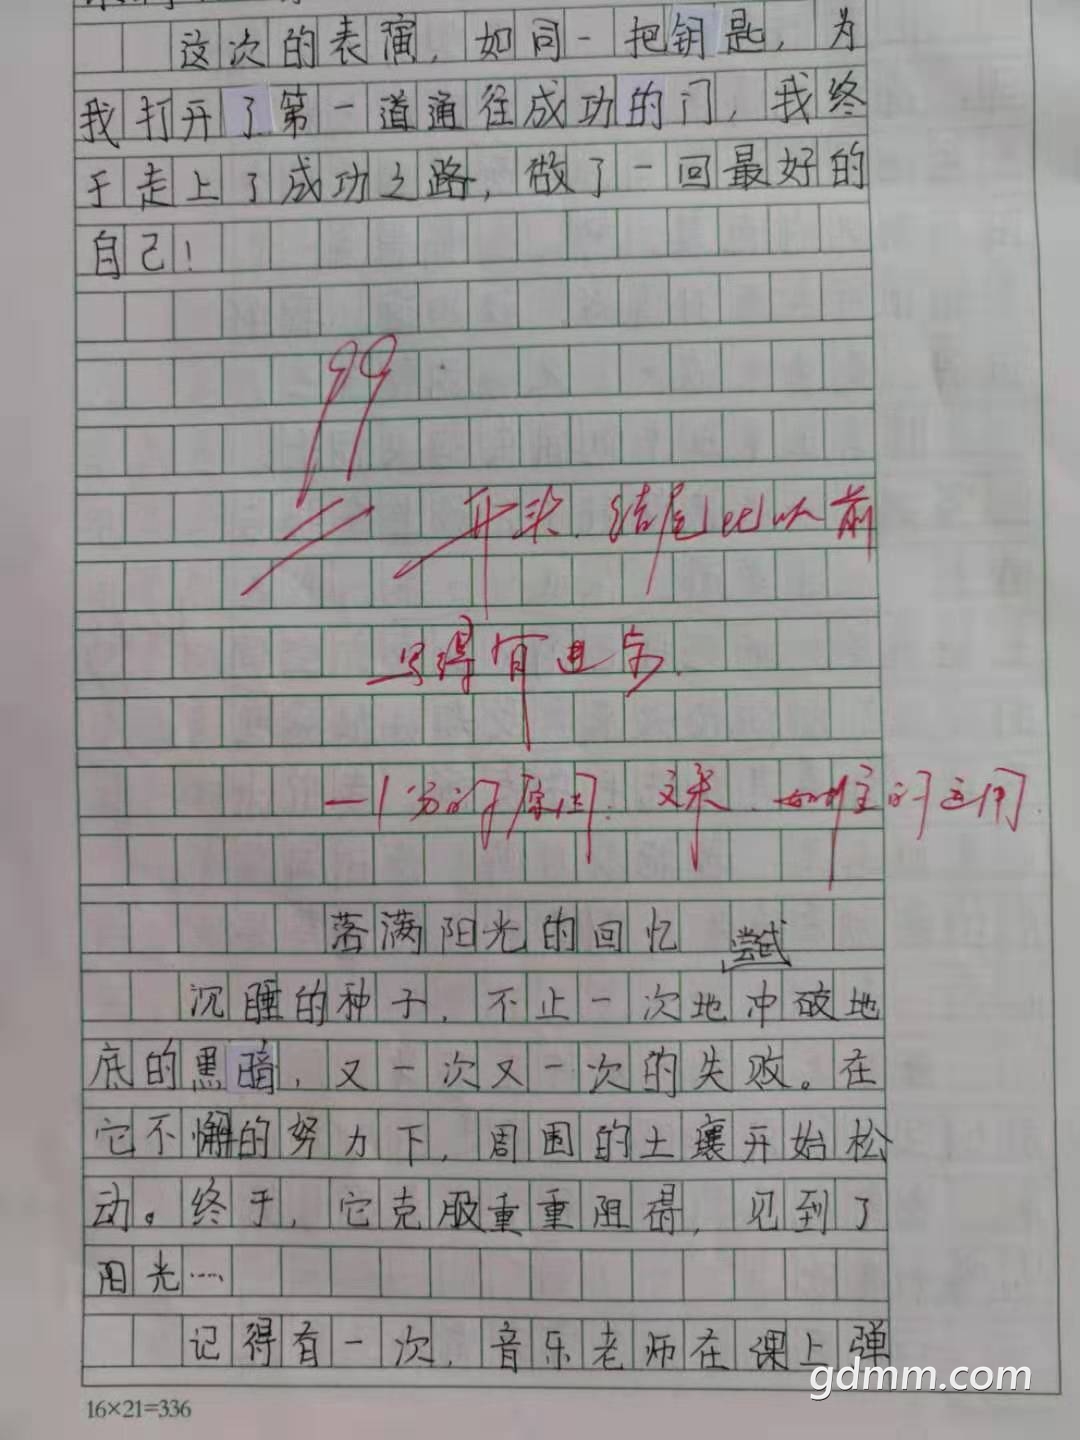 这次的表演，如同一把钥匙，为
我打开了第一道通往成功的门，我终
于走上了成功之路，做了一回最好的
自己！
99
开头、结尾比以前
写得有进步.
一1分的原因：文采、的运用.
落满阳光的回忆
尝试
沉睡的种子，不止一次地冲破地
底的黑暗，又一次又一次的失败。在
它不懈的努力下，周围的土壤开始松
动。终于，它克服重重阻碍，见到了
阳光……
记得有一次，音乐老师在课上弹
16×21=336
gdmm.com